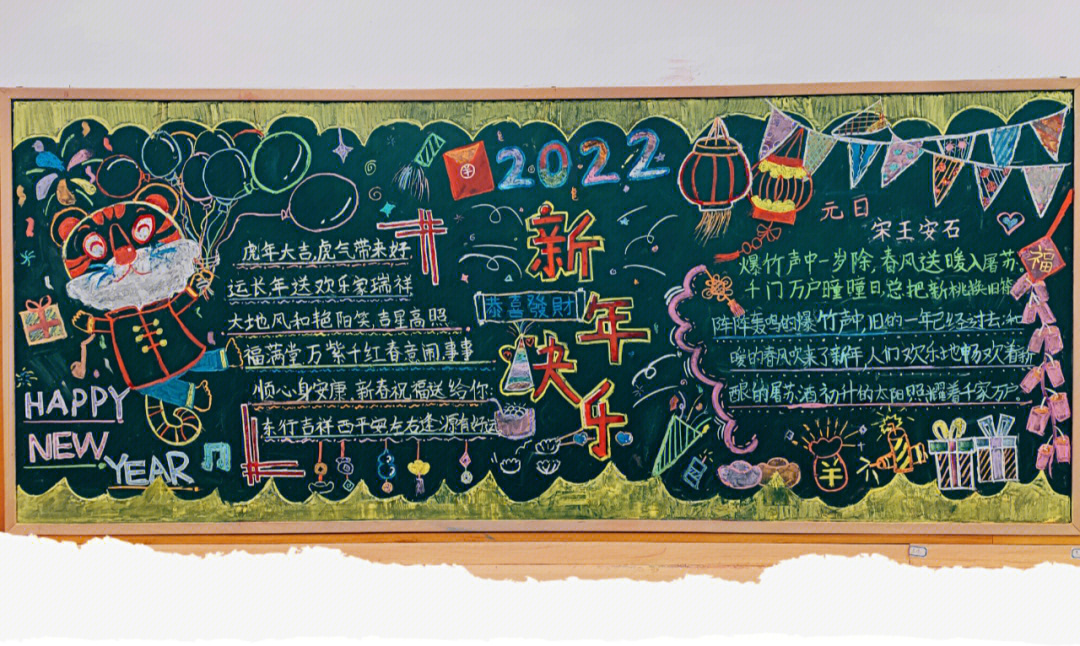 HAPPY
NEW
YEAR
虎年大吉,虎气带来好
运长年送欢乐家瑞祥
大地风和艳阳笑,吉星高照
福满堂万紫千红春意闹,事事
顺心身安康,新春祝福送给你:
东行吉祥西平安左右逢源有好运
2022
新
年
快
乐
恭喜發財
元日
宋王安石
爆竹声中一岁除,春风送暖入屠苏
千门万户曈曈日总把新桃换旧符
阵阵轰鸣的爆竹声中,旧的一年已经过去;和
暖的春风吹来了新年,人们欢乐地畅饮着新
酿的屠苏酒初升的太阳照耀着千家万户
福